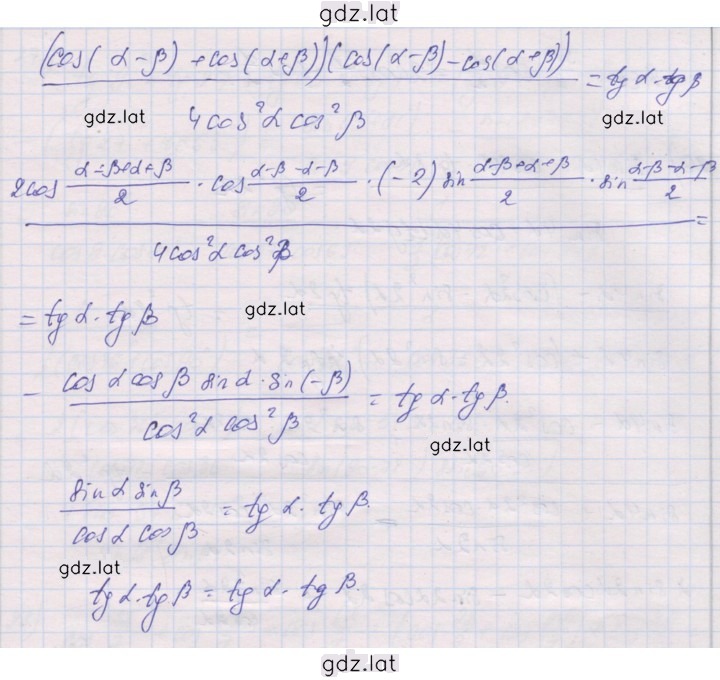 gdz.lat
(cos(α-β) +cos(α+β))(cos(α-β)-cos(α+β)) / 4cos²α cos²β = tg α·tg β
gdz.lat
gdz.lat
2cos (α-β+α+β)/2 · cos (α-β-α-β)/2 · (-2) sin (α-β+α+β)/2 · sin (α-β-α-β)/2 / 4cos²α cos²β =
= tg α · tg β
gdz.lat
- cos α cos β sin α · sin (-β) / cos²α cos²β = tg α · tg β.
gdz.lat
sin α sin β / cos α cos β = tg α · tg β.
gdz.lat
tg α · tg β = tg α · tg β.
gdz.lat